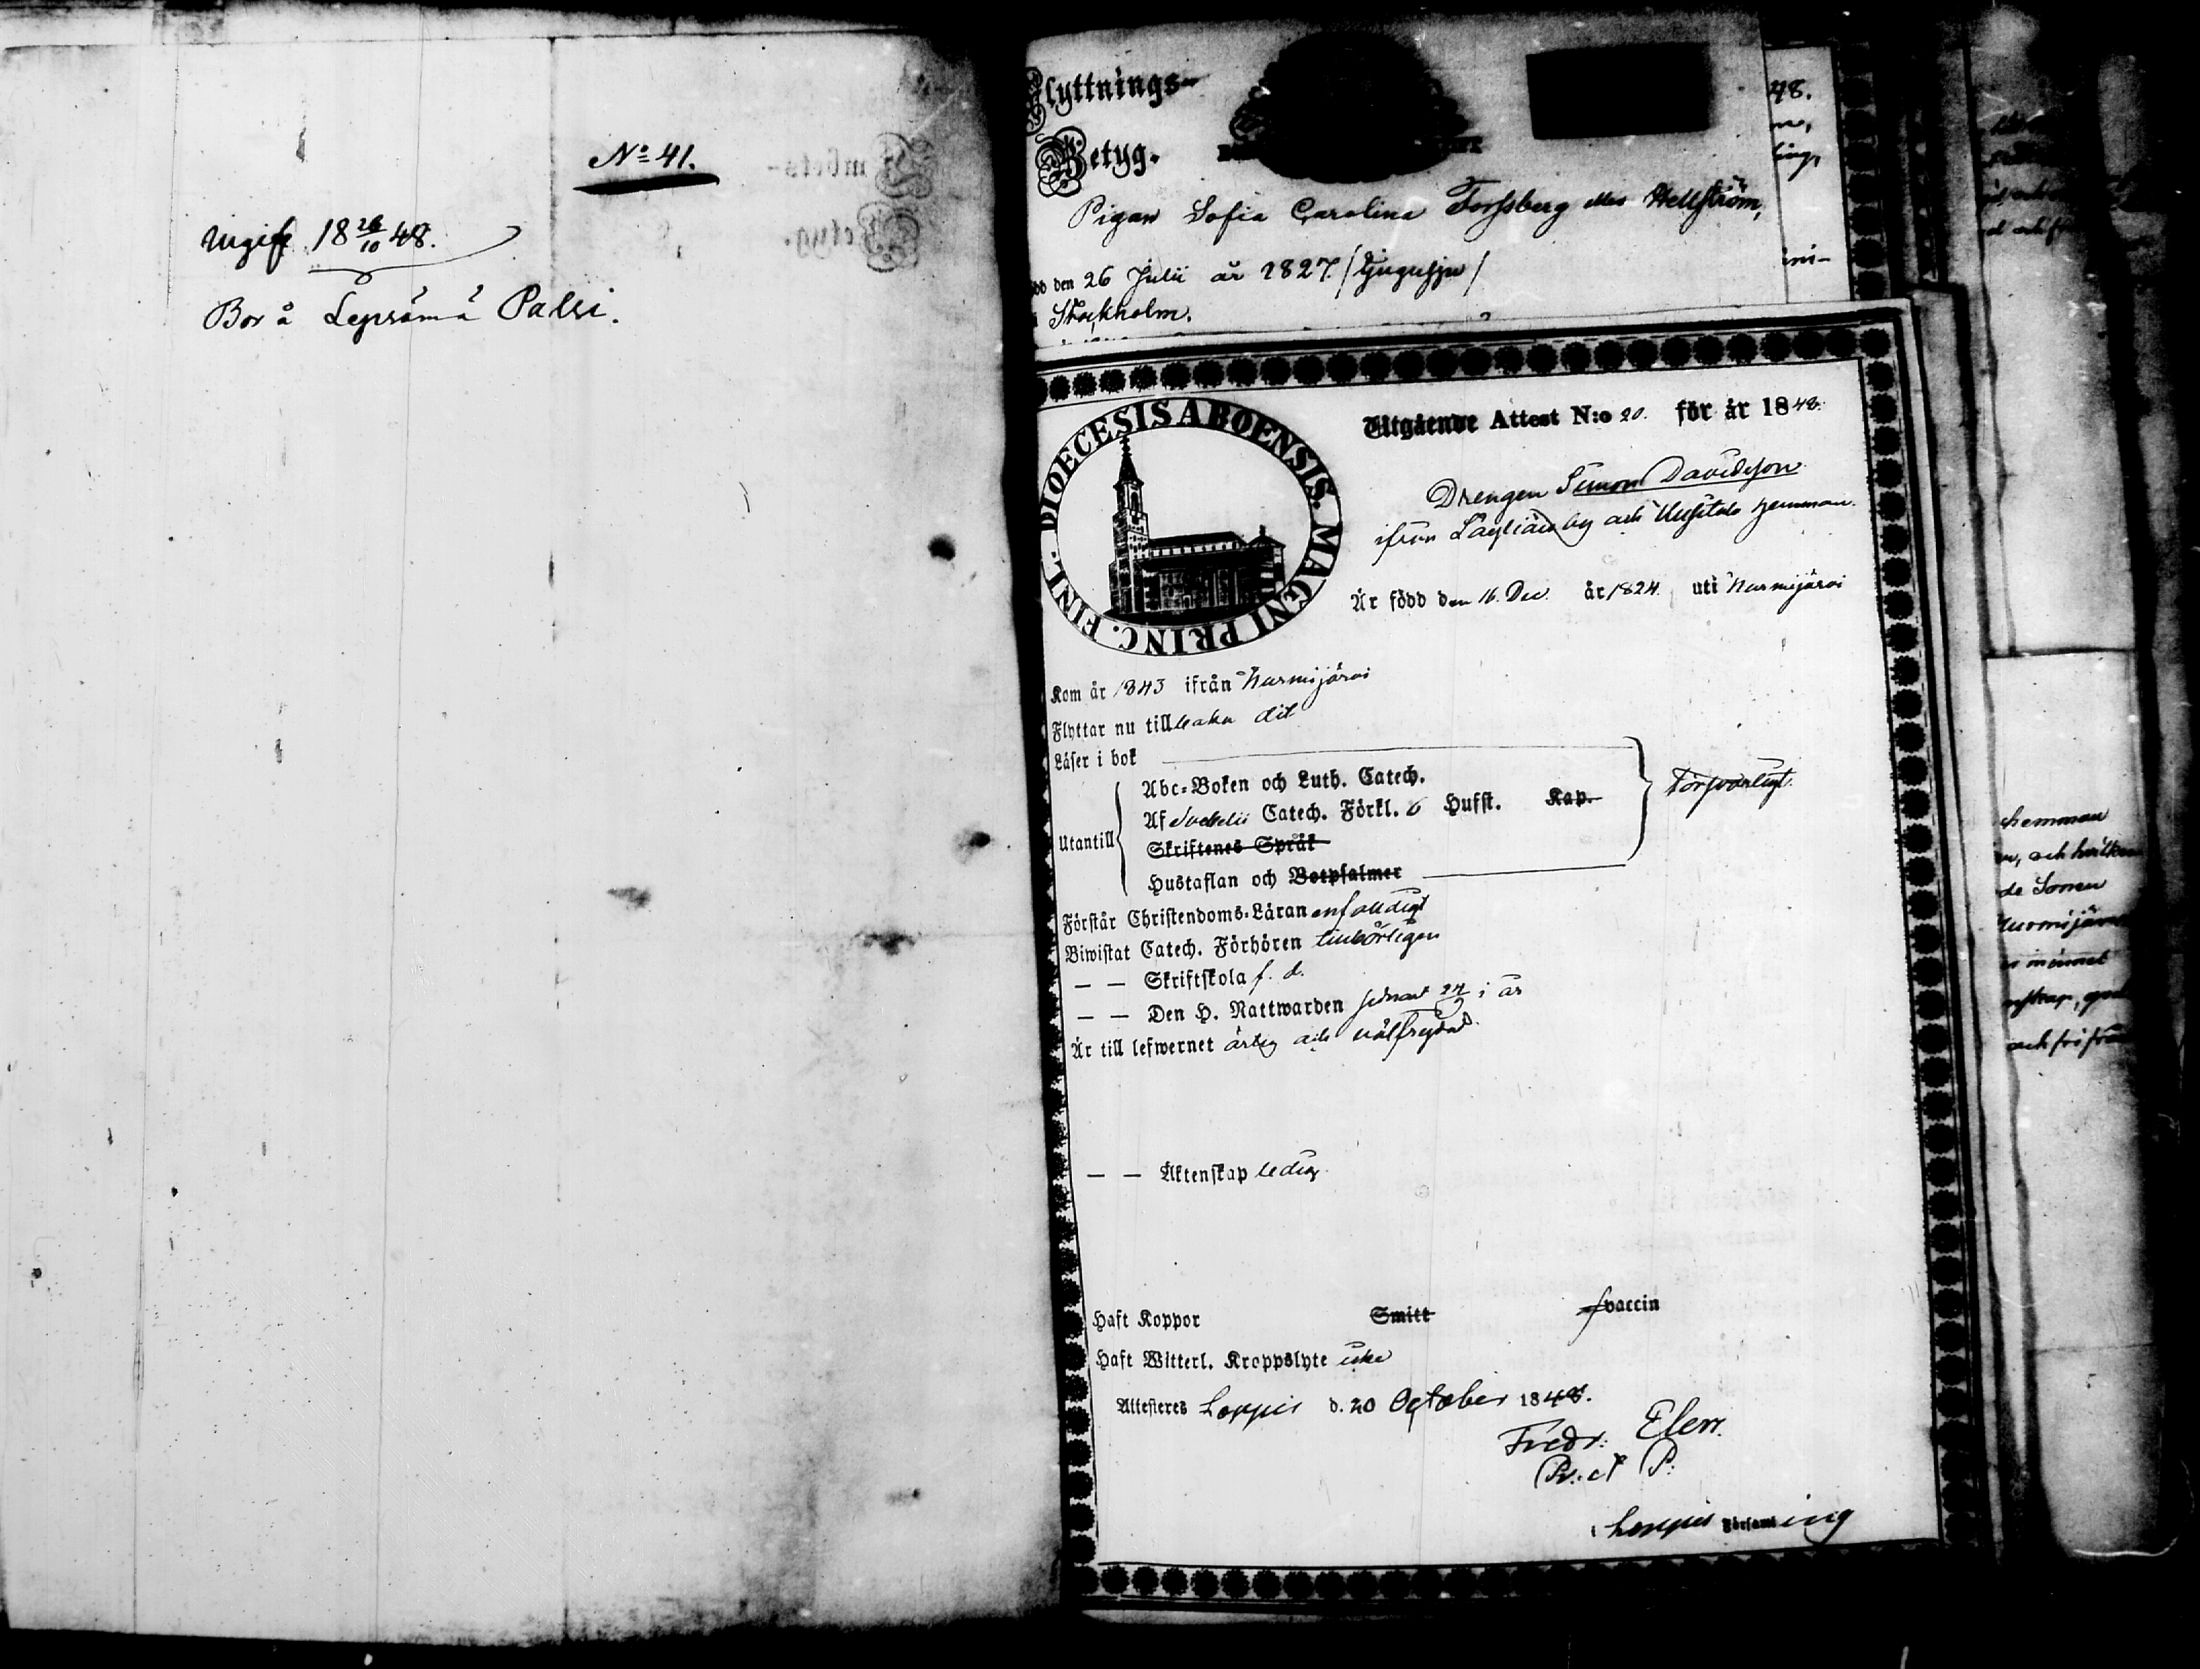 No 41.
Uigift 18 26/10 48.
Bor å Lepsämä Palsi.
Flyttnings-
Betyg.
Pigan Sofia Carolina Forssberg eller Hellström,
född den 26 Julii år 1827.
i Stockholm.
48.
DIOECESIS ABOENSIS. MAGNI PRINC. FINL.
Utgående Attest N:o 20. för år 1848.
Drengen Simon Davidsson
ifrån by och hemman.
Är född den 16. Dec. år 1824. uti Nurmijärvi
Kom år 1843 ifrån Nurmijärvi
Flyttar nu tillbaka dit
Läser i bok
Abc-Boken och Luth. Catech.
Af Svebelii Catech. Förkl. 6 Hufst. Kap.
Försvarligt.
Utantill
Skriftenes Språk
Hustaflan och Botpsalmer
Förstår Christendoms-Läran enfaldigt
Biwistat Catech. Förhören tillbörligen
— — Skriftskola f. d.
— — Den H. Nattwarden sednast i år
Är till lefwernet ärlig och välfrejdad.
— — Äktenskap ledig
Haft Koppor Smitt vaccin
Haft Witterl. Kroppslyte icke
Attesteres Loppis d. 20 October 1848.
Fredr: Elen.
P.
i Loppis Församling
hemman
och
de Sonen
Nurmijärvi
och fri från